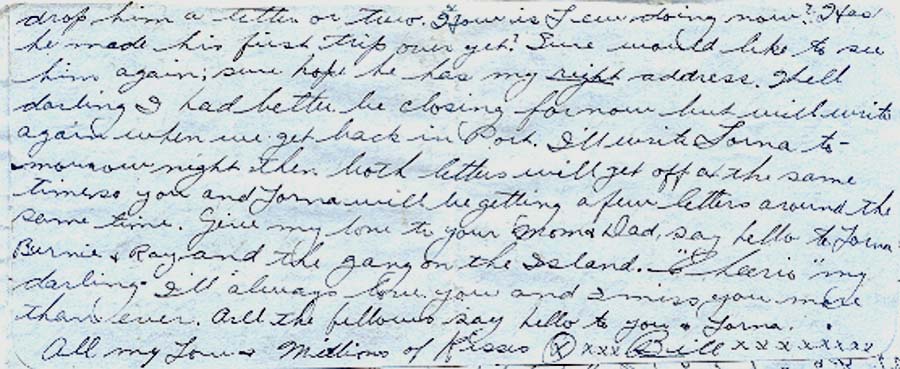 drop him a letter or two. How is Lew doing now? Has
he made his first trip over yet? Sure would like to see
him again; sure hope he has my right address. Well
darling I had better be closing for now but will write
again when we get back in Port. I'll write Lorna to-
morrow night then both letters will get off at the same
time so you and Lorna will be getting a few letters around the
same time. Give my love to your Mom & Dad, say hello to Lorna
Bernie & Ray and the gang on the Island. "Cheerio" my
darling I'll always love you and I miss you more
than ever. All the fellows say hello to you & Lorna.
All my Love & Millions of Kisses (X) xxx Bill xxxxxxxx